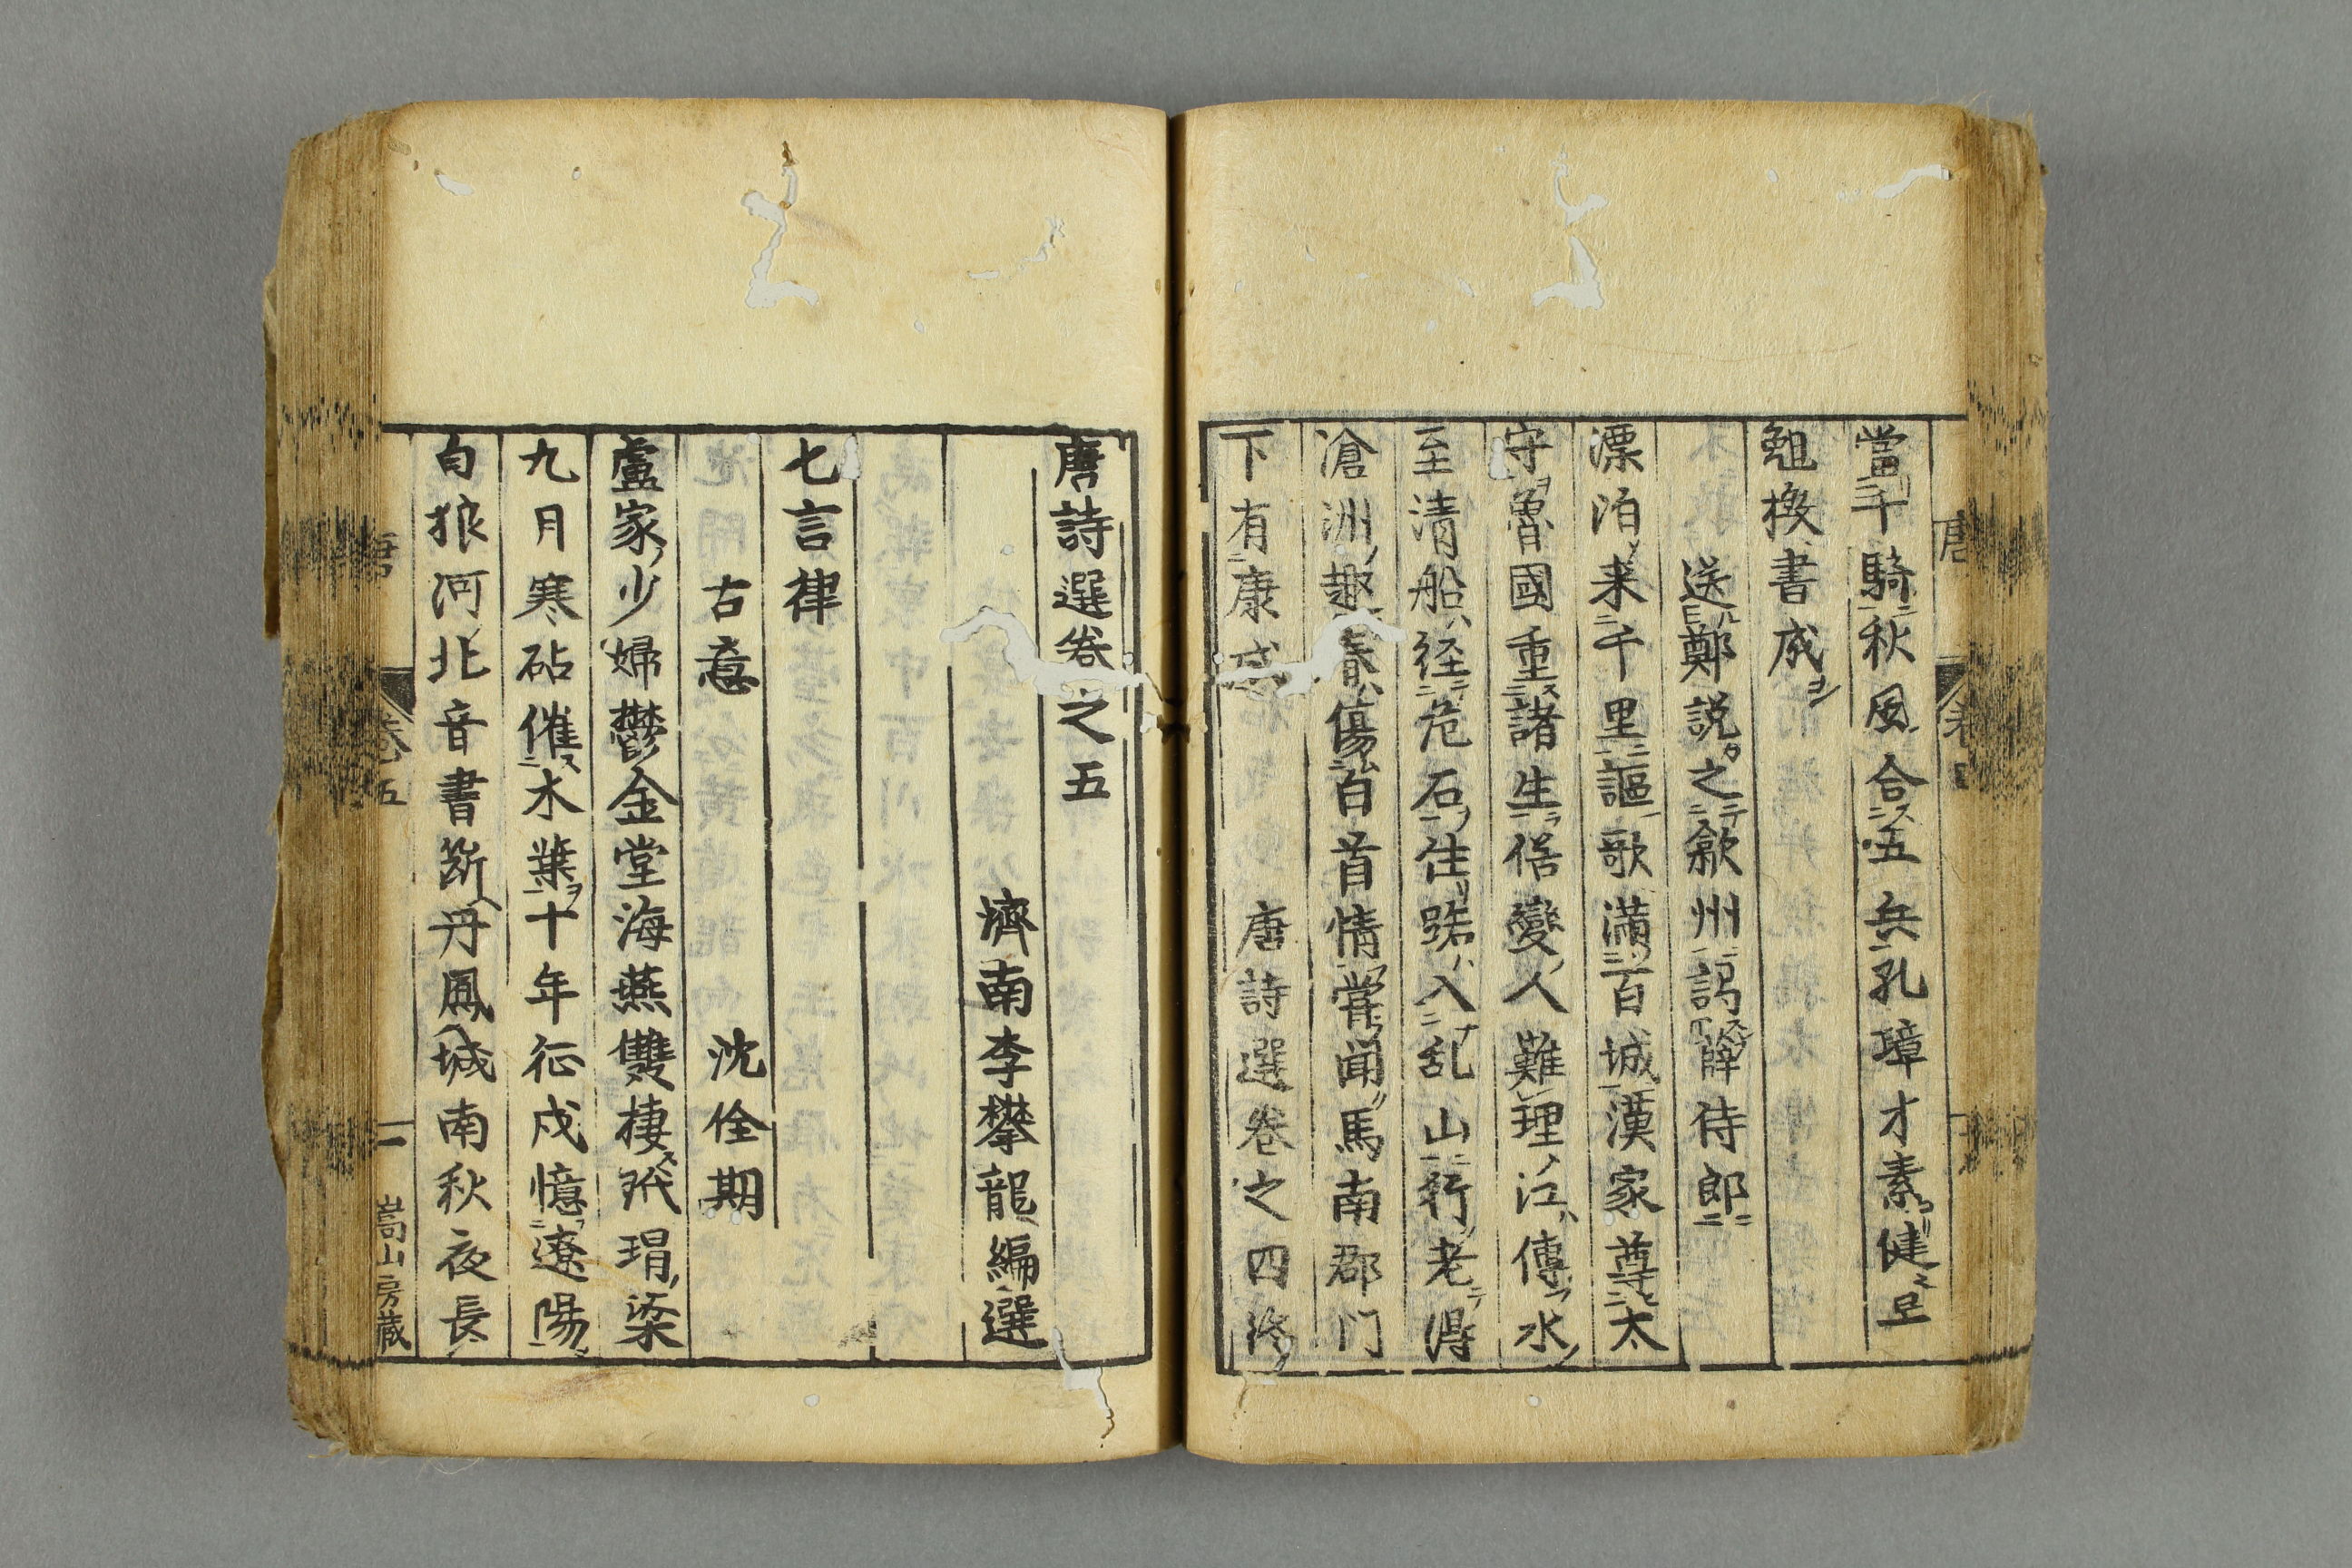 當千騎秋風合五兵孔璋才素健早
晚檄書成
送鄭説之歙州謁薛侍郎
漂泊来千里謳歌满百城漢家尊太
守魯國重諸生俗變人難理江傳水
至清船径危石住路入乱山行老得
滄洲趣春傷白首情嘗闻馬南郡门
下有康成
唐詩選卷之四終
唐詩選卷之五
濟南李攀龍編選
七言律
古意
沈佺期
盧家少婦鬱金堂海燕雙棲玳瑁梁
九月寒砧催木葉十年征戍憶遼陽
白狼河北音書断丹鳳城南秋夜長
唐
卷五
一
嵩山房蔵